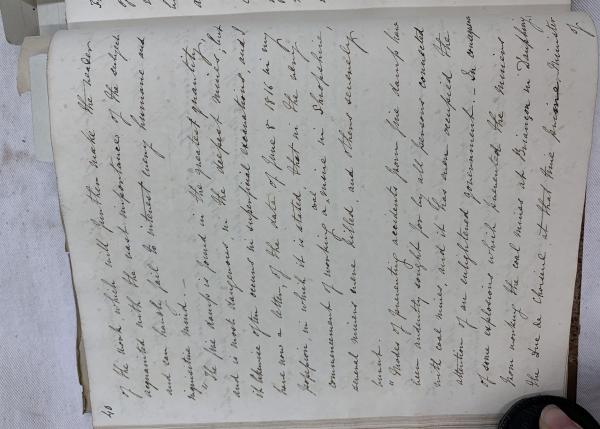 40
of the work which will further make the reader
acquainted with the vast importance of the subject
and can hardly fail to interest every humane and
inquisitive mind. —
"The fire damp is found in the greatest quantity
and is most dangerous in the deepest mines, but
it likewise often occurs in superficial excavations and I
have now a letter, of the date of June 8 1816 in my
possession, in which it is stated that in the very
commencement of working a coal mine in Shropshire,
several miners were killed and others severely
burnt.
"Modes of preventing accidents from fire damp have
been ardently sought for by all persons connected
with coal mines, and it has even occupied the
attention of an enlightened government. — In consequence
of some explosions which prevented the miners
from working the coal mines at Briançon in Dauphiny
the Duc de Choiseul at that time prime Minister
of.